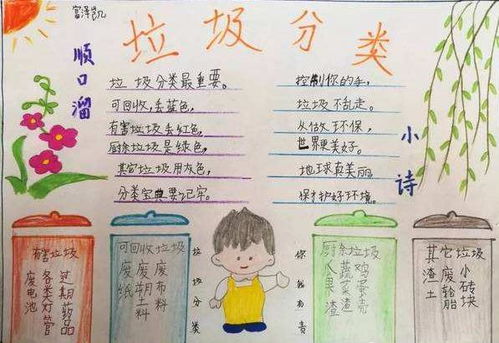 富泽凯
垃圾分类
顺口溜
垃圾分类最重要。
可回收,丢蓝色,
有害垃圾丢红色,
厨余垃圾是绿色,
其它垃圾用灰色,
分类宝典要记牢。
控制你的手,
垃圾不乱走。
从做环保,
世界更美好。
地球真美丽
保护好环境。
小诗
有害垃圾
过期药品
各类灯管
废电池
可回收垃圾
废布料
废塑料
废纸
垃圾分类
你我有责
厨余垃圾
鸡蛋壳
蔬菜渣
瓜果渣
其它垃圾
小砖块
废轮胎
渣土